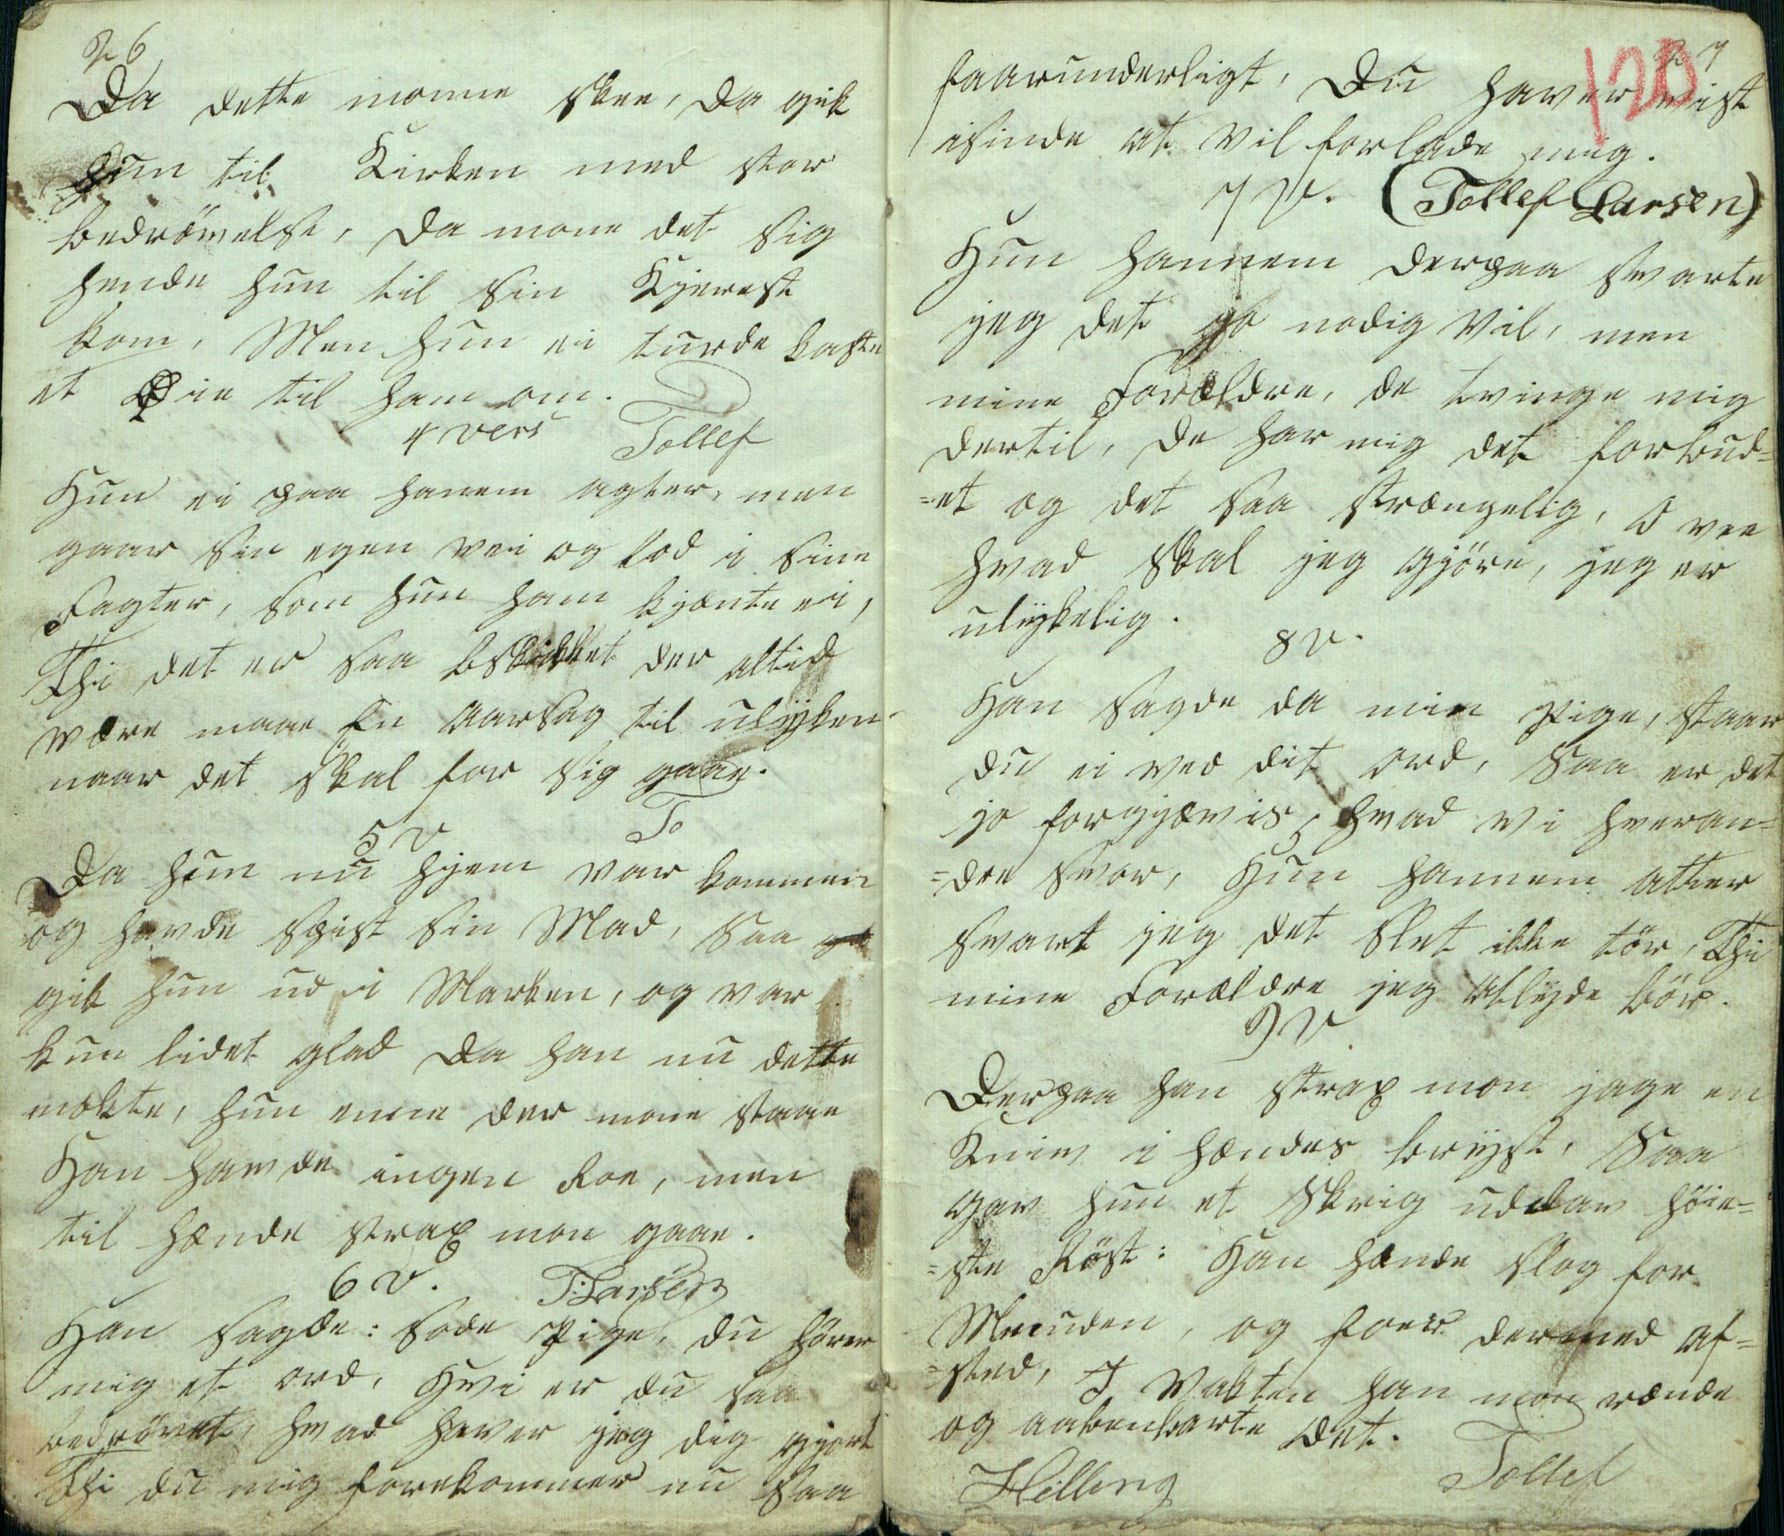 26
Da dette monne skee, da gik
hun til Kirken med stor
bedrövelse, da mone det sig
hende hun til sin Kjereste
kom, Men hun ei turde kaste
et Öie til ham om.
4 vers Tollef
Hun ei paa hanem agter, men
gaar sin egen vei og lod i sine
Fagter, som hun ham kjænte ei,
Thi det er saa bskikket der altid
være maae En Aarsag til ulÿken
naar det skal for sig gaae.
5 V To
Da hun nu hjem var kommen
og havde spist sin Mad, saa
gik hun ud i Marken, og var
kun lidet glad Da han nu dette
mækte, hun ene der mone staae
Han havde ingen Roe, men
til hænde strax mon gaae.
6 V. T: Larsen
Han sagde: söde Pige, du hörer
mig et ord, Hvi er du saa
bedrövet, hvad haver jeg dig gjort
Thi du mig forekommer nu saa
27
120
faarunderligt, Du haver vist
isinde at vil forlade mig.
7 V. (Tollef Larsen)
Hun hannem derpaa svarte
jeg det jo nödig vil, men
mine Forældre, de tvinge mig
dertil, De har mig det forbud=
=et og det saa strængelig, O vee
hvad skal jeg gjöre, jeg er
ulÿkelig.
8 V.
Han sagde da min Pige, staar
du ei ved dit ord, saa er det
jo forgjævis, hvad vi hveran=
=dre svor, Hun hannem atter
svart jeg det slet ikke tör, Thi
mine Forældre jeg atlÿde bör.
9 V
Derpaa han strax mon jage en
Kniv i hændes brÿst, Saa
gav hun et Skrig ud av höie=
=ste Röst: Han hænde slog for
Munden, og foer dermed af=
=sted, I Vakten han mon rænde
og aabenbarte det.
Helling Tollef